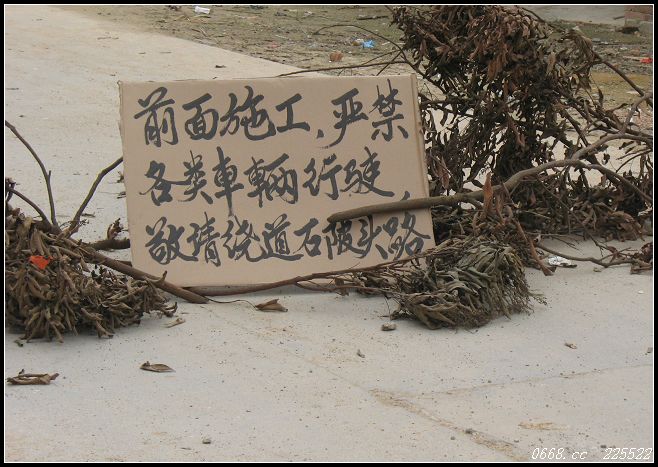 前面施工,严禁
各类车辆行驶,
敬请绕道石陂头路
0668.cc 225522